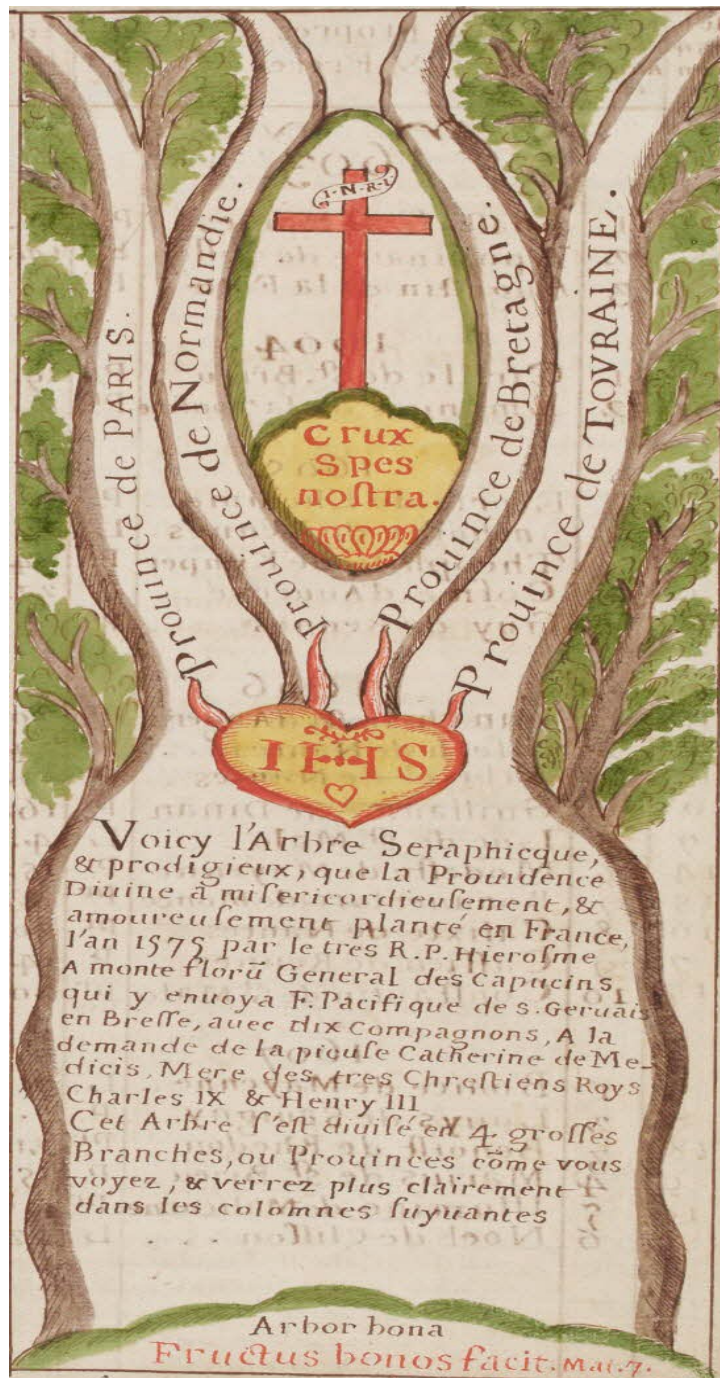 I·N·R·I·
Prouince de PARIS.
Prouince de Normandie.
Crux
Spes
noſtra.
Prouince de Bretagne.
Prouince de TOVRAINE.
IHS
Voicy l'Arbre Seraphicque,
& prodigieux, que la Prouidence
Diuine â miſericordieuſement, &
amoureuſement planté en France,
l'an 1575 par le tres R.P. Hieroſme
A monte florū General des Capucins,
qui y enuoya F. Pacifique de S. Geruais
en Breſſe, auec dix Compagnons, A la
demande de la pieuſe Catherine de Me-
dicis, Mere des tres Chreſtiens Roys
Charles IX & Henry III
Cet Arbre ſ'eſt diuiſé en 4 groſſes
Branches, ou Prouinces cōme vous
voyez, & verrez plus clairement
dans les colomnes ſuyuantes
Arbor bona
Fructus bonos facit. Mat. 7.